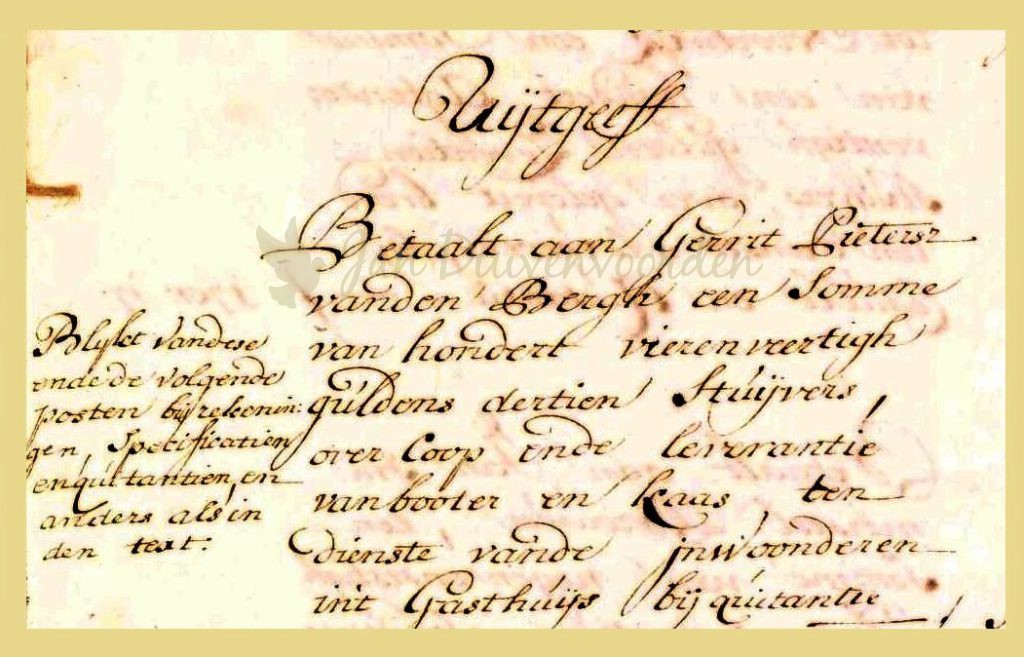 Uijtgeeff
Betaalt aan Gerrit Pietersz
vanden Bergh een Somme
van hondert vierenveertigh
guldens dertien Stuijvers,
over Coop ende leverantie
van booter en kaas ten
dienste vande jnwoonderen
int Gasthuijs bij quitantie
Blijkt vandese
ende de volgende
posten bij rekenin:
gen, Specificatien
en quitantien, en
anders als in
den text.
Jan Duivenvoorden